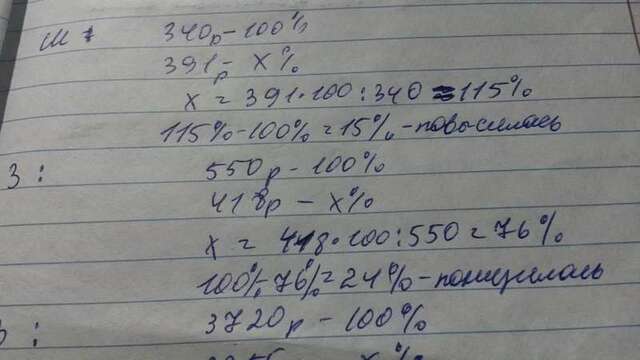 Ш: 340р - 100%
391р - х%
х = 391·100:340 = 115%
115% - 100% = 15% - повысилась
З: 550р - 100%
418р - х%
х = 418·100:550 = 76%
100% - 76% = 24% - понизилась
: 3720р - 100%
х%